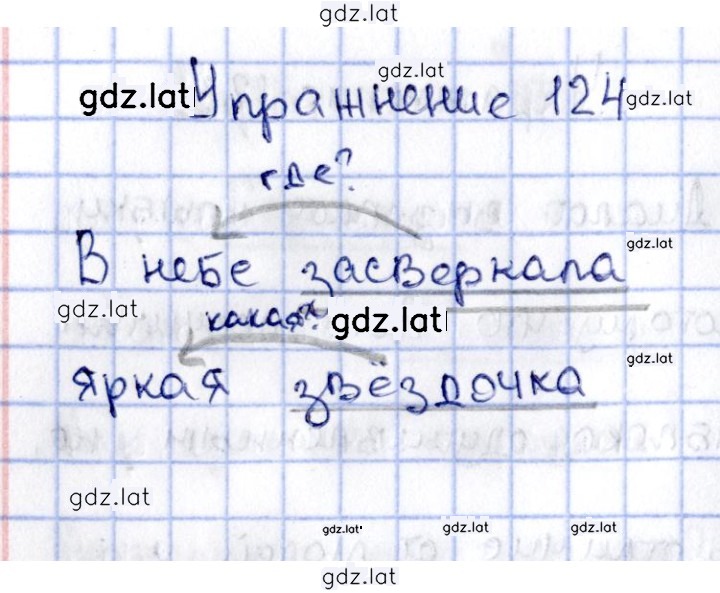 gdz.lat
gdz.lat
gdz.lat Упражнение 124 gdz.lat
где?
gdz.lat
В небе засверкала
gdz.lat какая? gdz.lat
gdz.lat
яркая звёздочка
gdz.lat
gdz.lat gdz.lat gdz.lat
gdz.lat